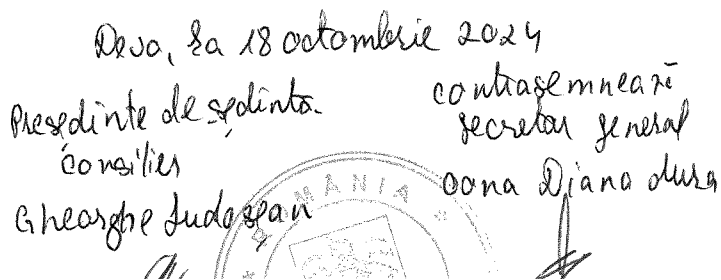 Deva, la 18 octombrie 2024
Președinte de ședință
consilier
Gheorghe Ludoșan
contrasemnează
secretar general
Oana Diana
ROMÂNIA